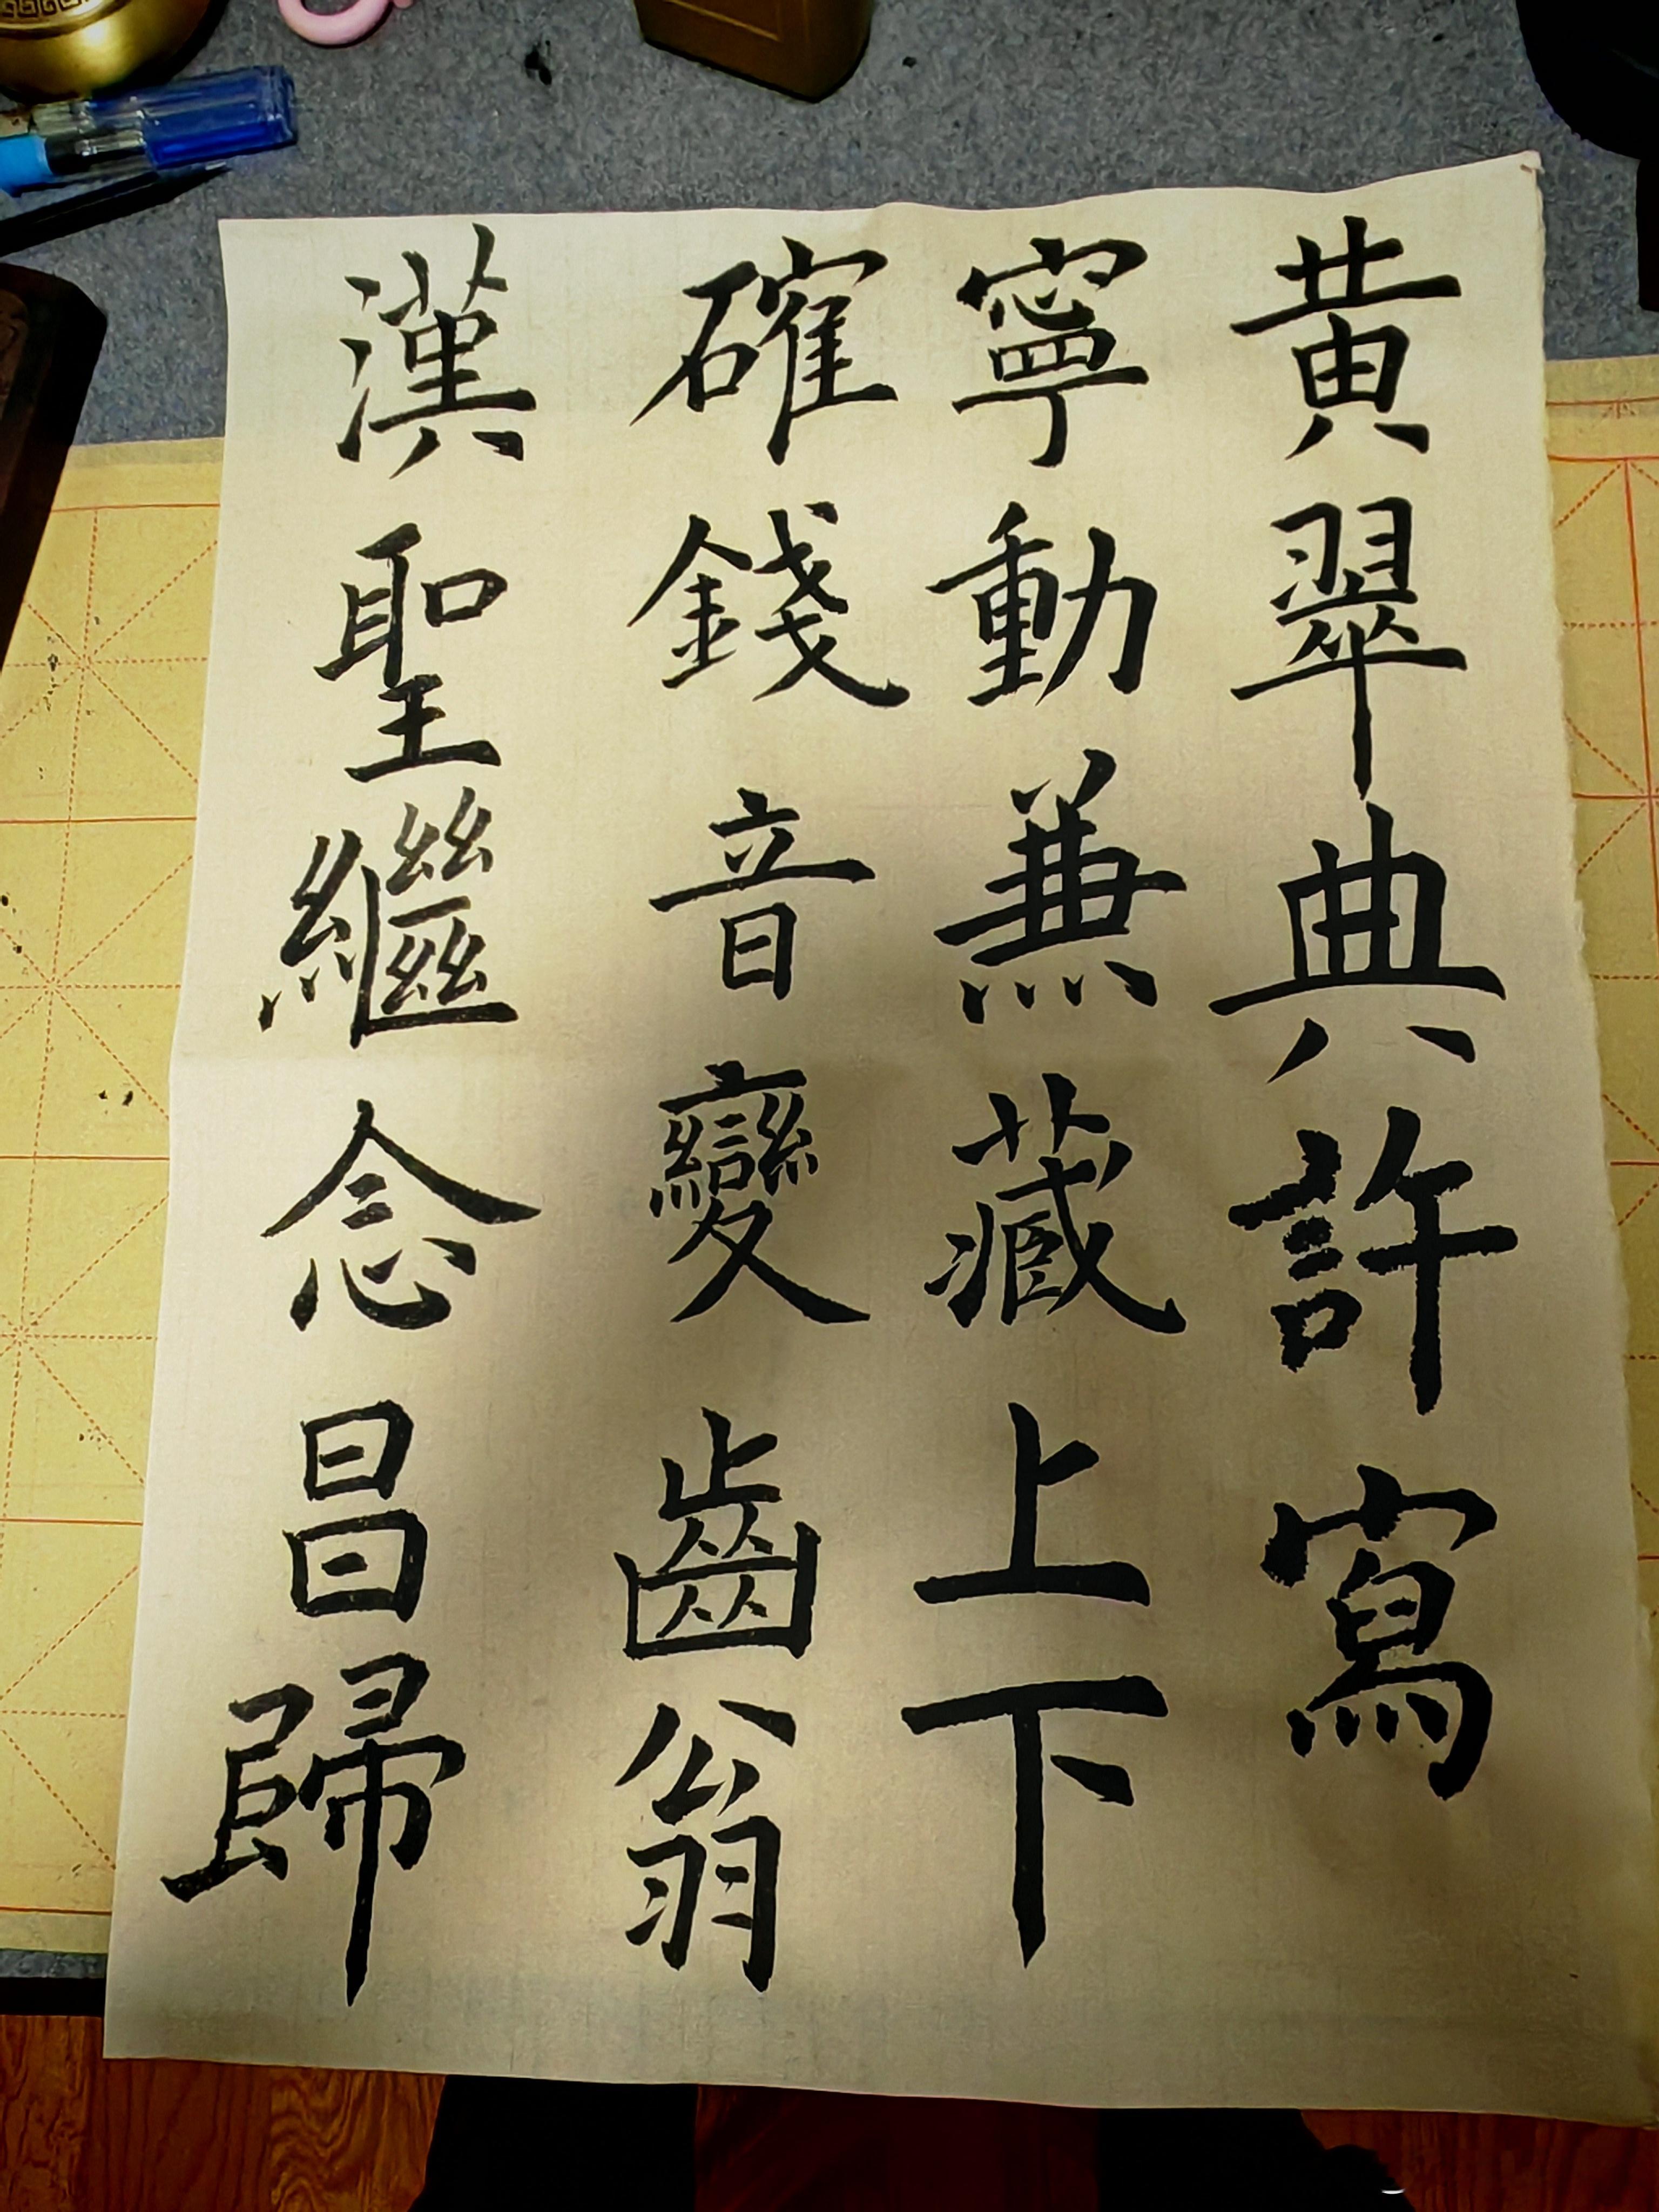 黄翠典許寫
寧動兼藏上下
確錢音變齒翁
漢聖繼念昌歸